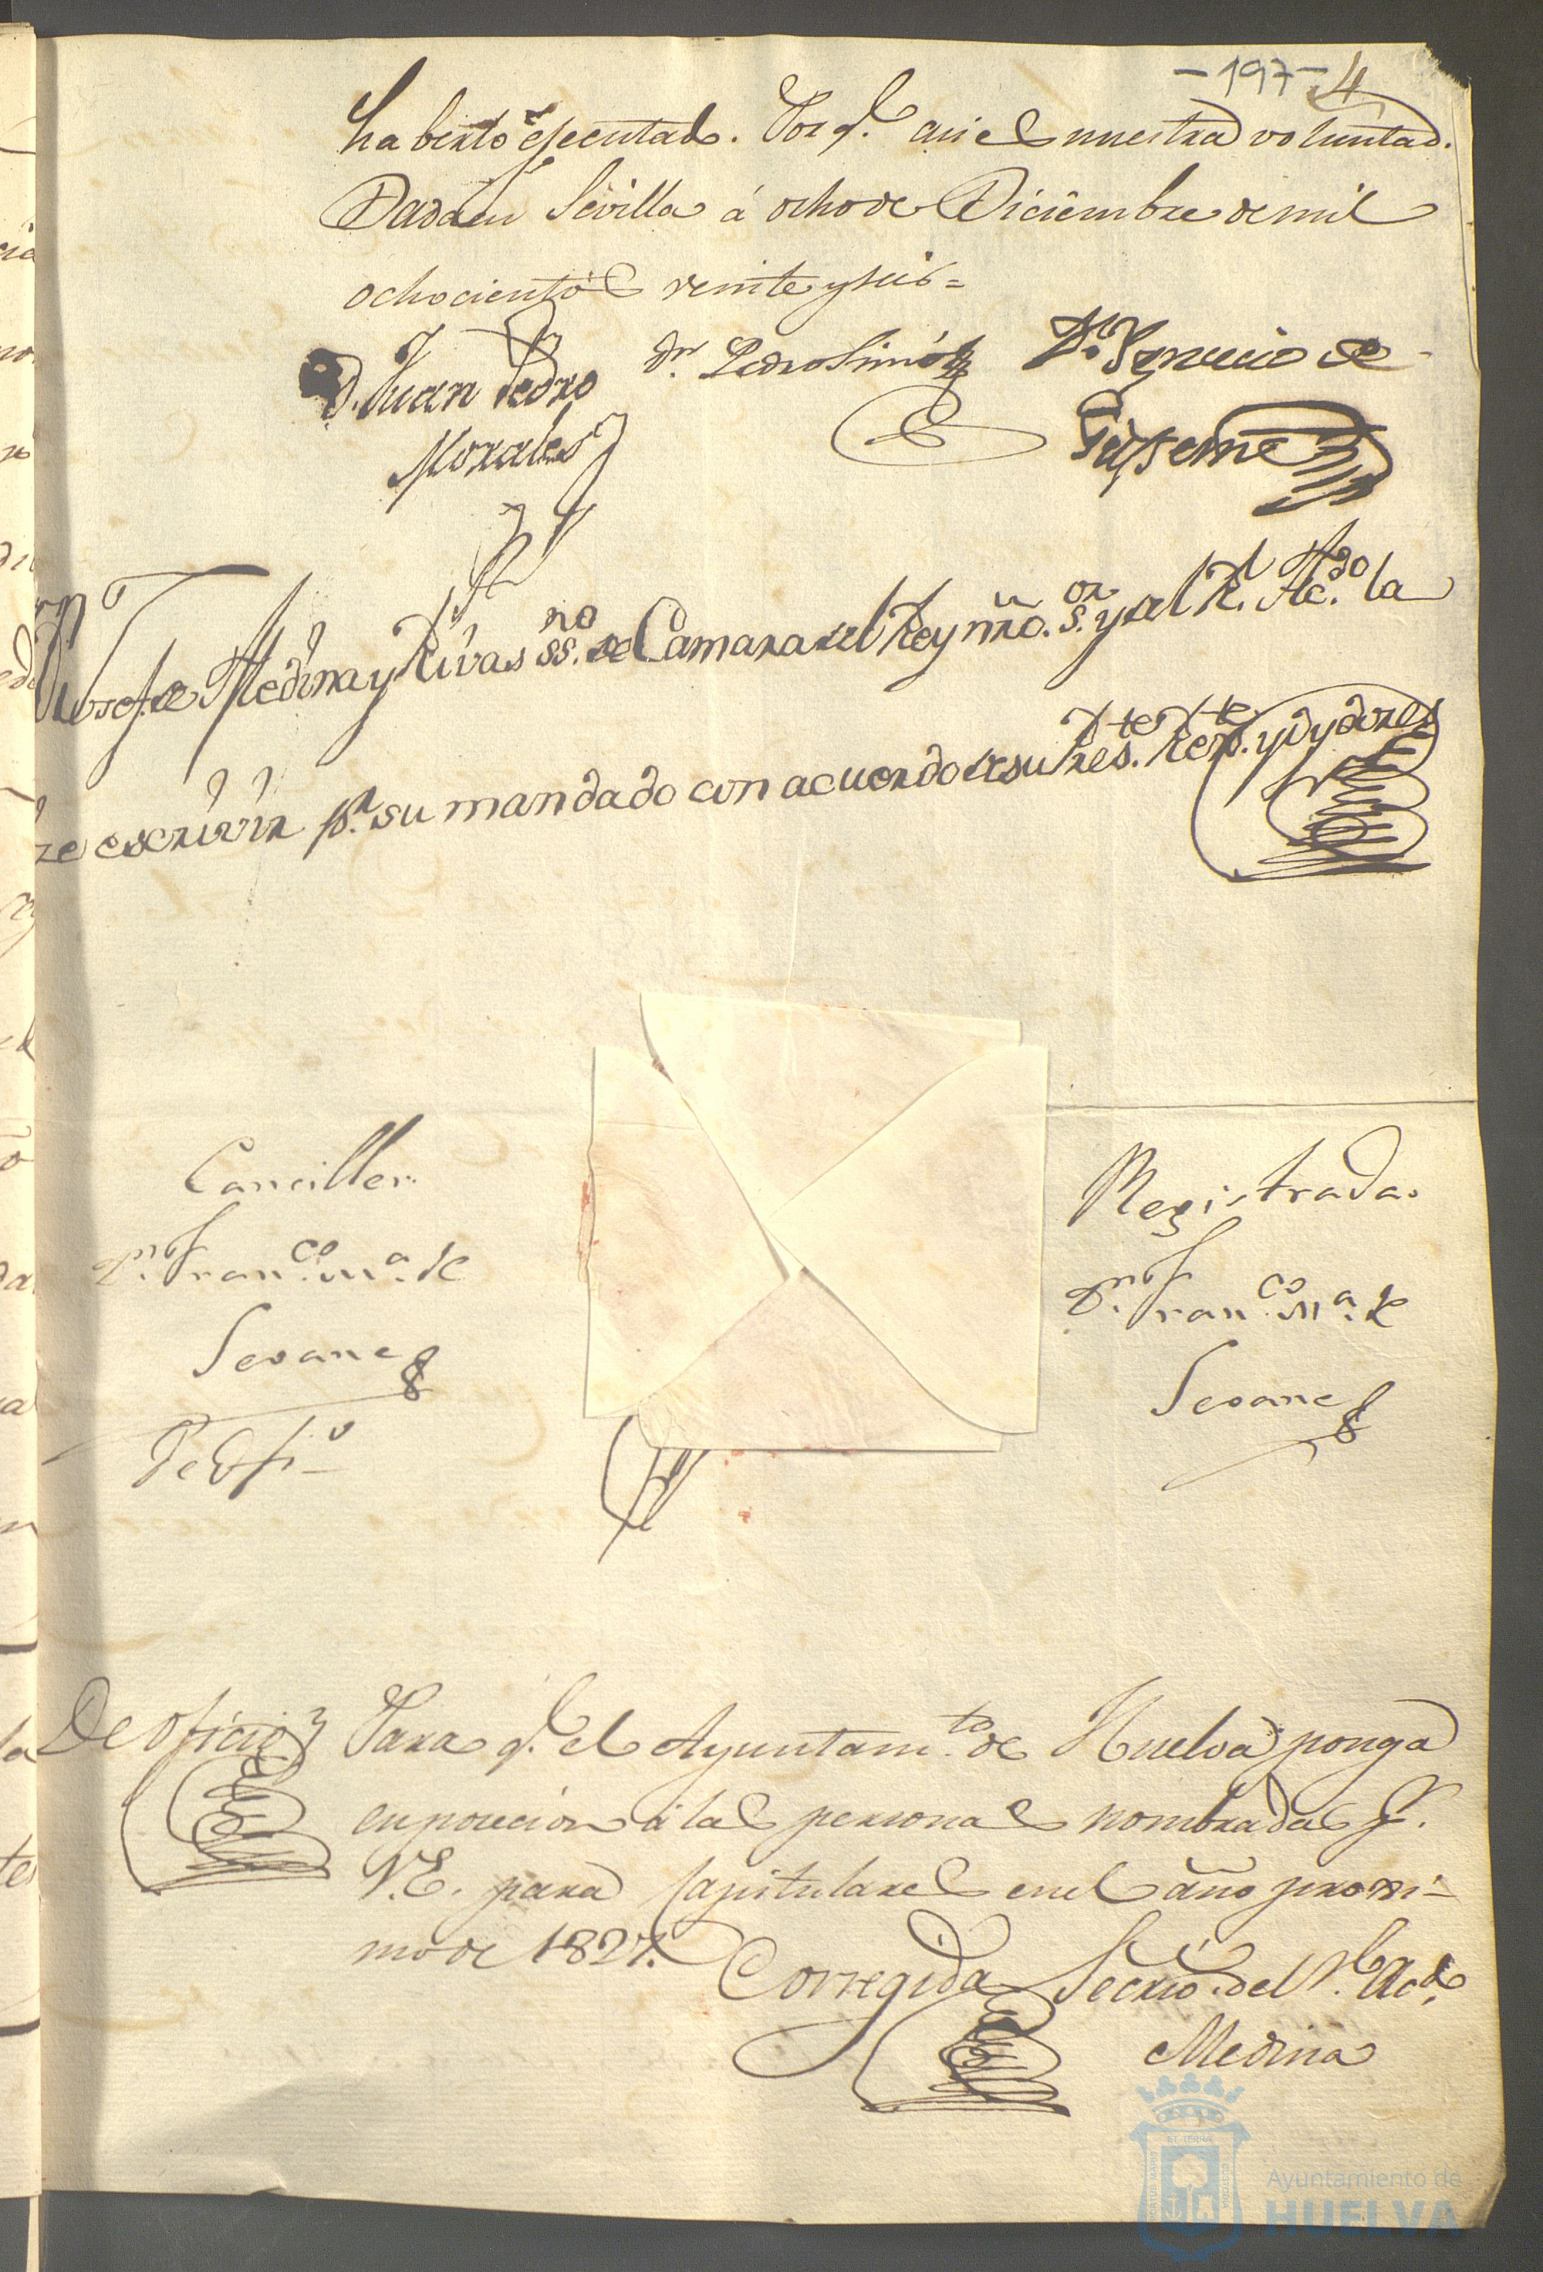 -197- 4
haberlo ejecutado. Por q.e asi es nuestra voluntad.
Dada en Sevilla á ocho de Diciembre de mil
ochocientos veinte y seis =
D. Juan Pedro
Morales
Dn. Pedro Simó
Dn. Ygnacio de
Yo Dn. Josef de Medina y Rivas SS.no de Camara del Rey nro. S.or y del Rl. Ac.do la
ze escrivir pr. su mandado con acuerdo de su Res.te Rex.te y Oydores
Canciller
Dn. Fran.co M.a de
Seoane
De Ofi.o
Registrada.
Dn. Fran.co M.a de
Seoane
De oficio
Para q.e el Ayuntam.to de Huelva ponga
en posecion á las personas nombradas pr.
V.E. para Capitulares en el año proxi-
mo de 1827.
Corregida
Secrio. del Rl. Acdo.
Medina
Ayuntamiento de
HUELVA